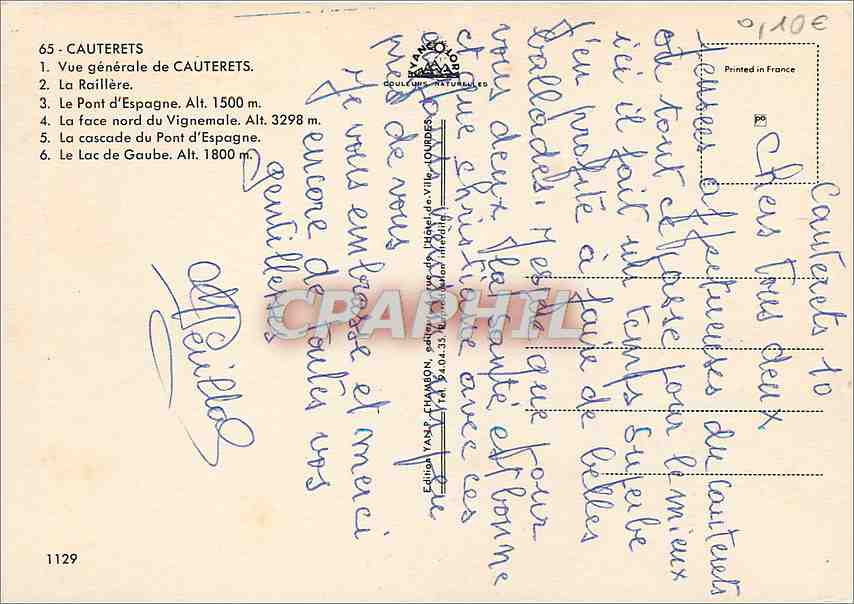 65 - CAUTERETS
1. Vue générale de CAUTERETS.
2. La Raillère.
3. Le Pont d'Espagne. Alt. 1500 m.
4. La face nord du Vignemale. Alt. 3298 m.
5. La cascade du Pont d'Espagne.
6. Le Lac de Gaube. Alt. 1800 m.
1129
YAN COLOR
COULEURS NATURELLES
Edition YAN P. CHAMBON, editeur, rue de l'Hôtel-de-Ville, LOURDES
Tél. 94.04.35. Reproduction interdite.
Printed in France
0,10€
Cauterets 10
Chers tous deux
Pensées affectueuses du cauterets
où tout ce passe pour le mieux
ici il fait un temps superbe
j'en profite à faire de belles
ballades. J'espère que pour
vous deux la santé est bonne
et que christiane avec ces
près de vous
Je vous embrasse et merci
encore de toutes vos
gentilleses
CPAPHIL